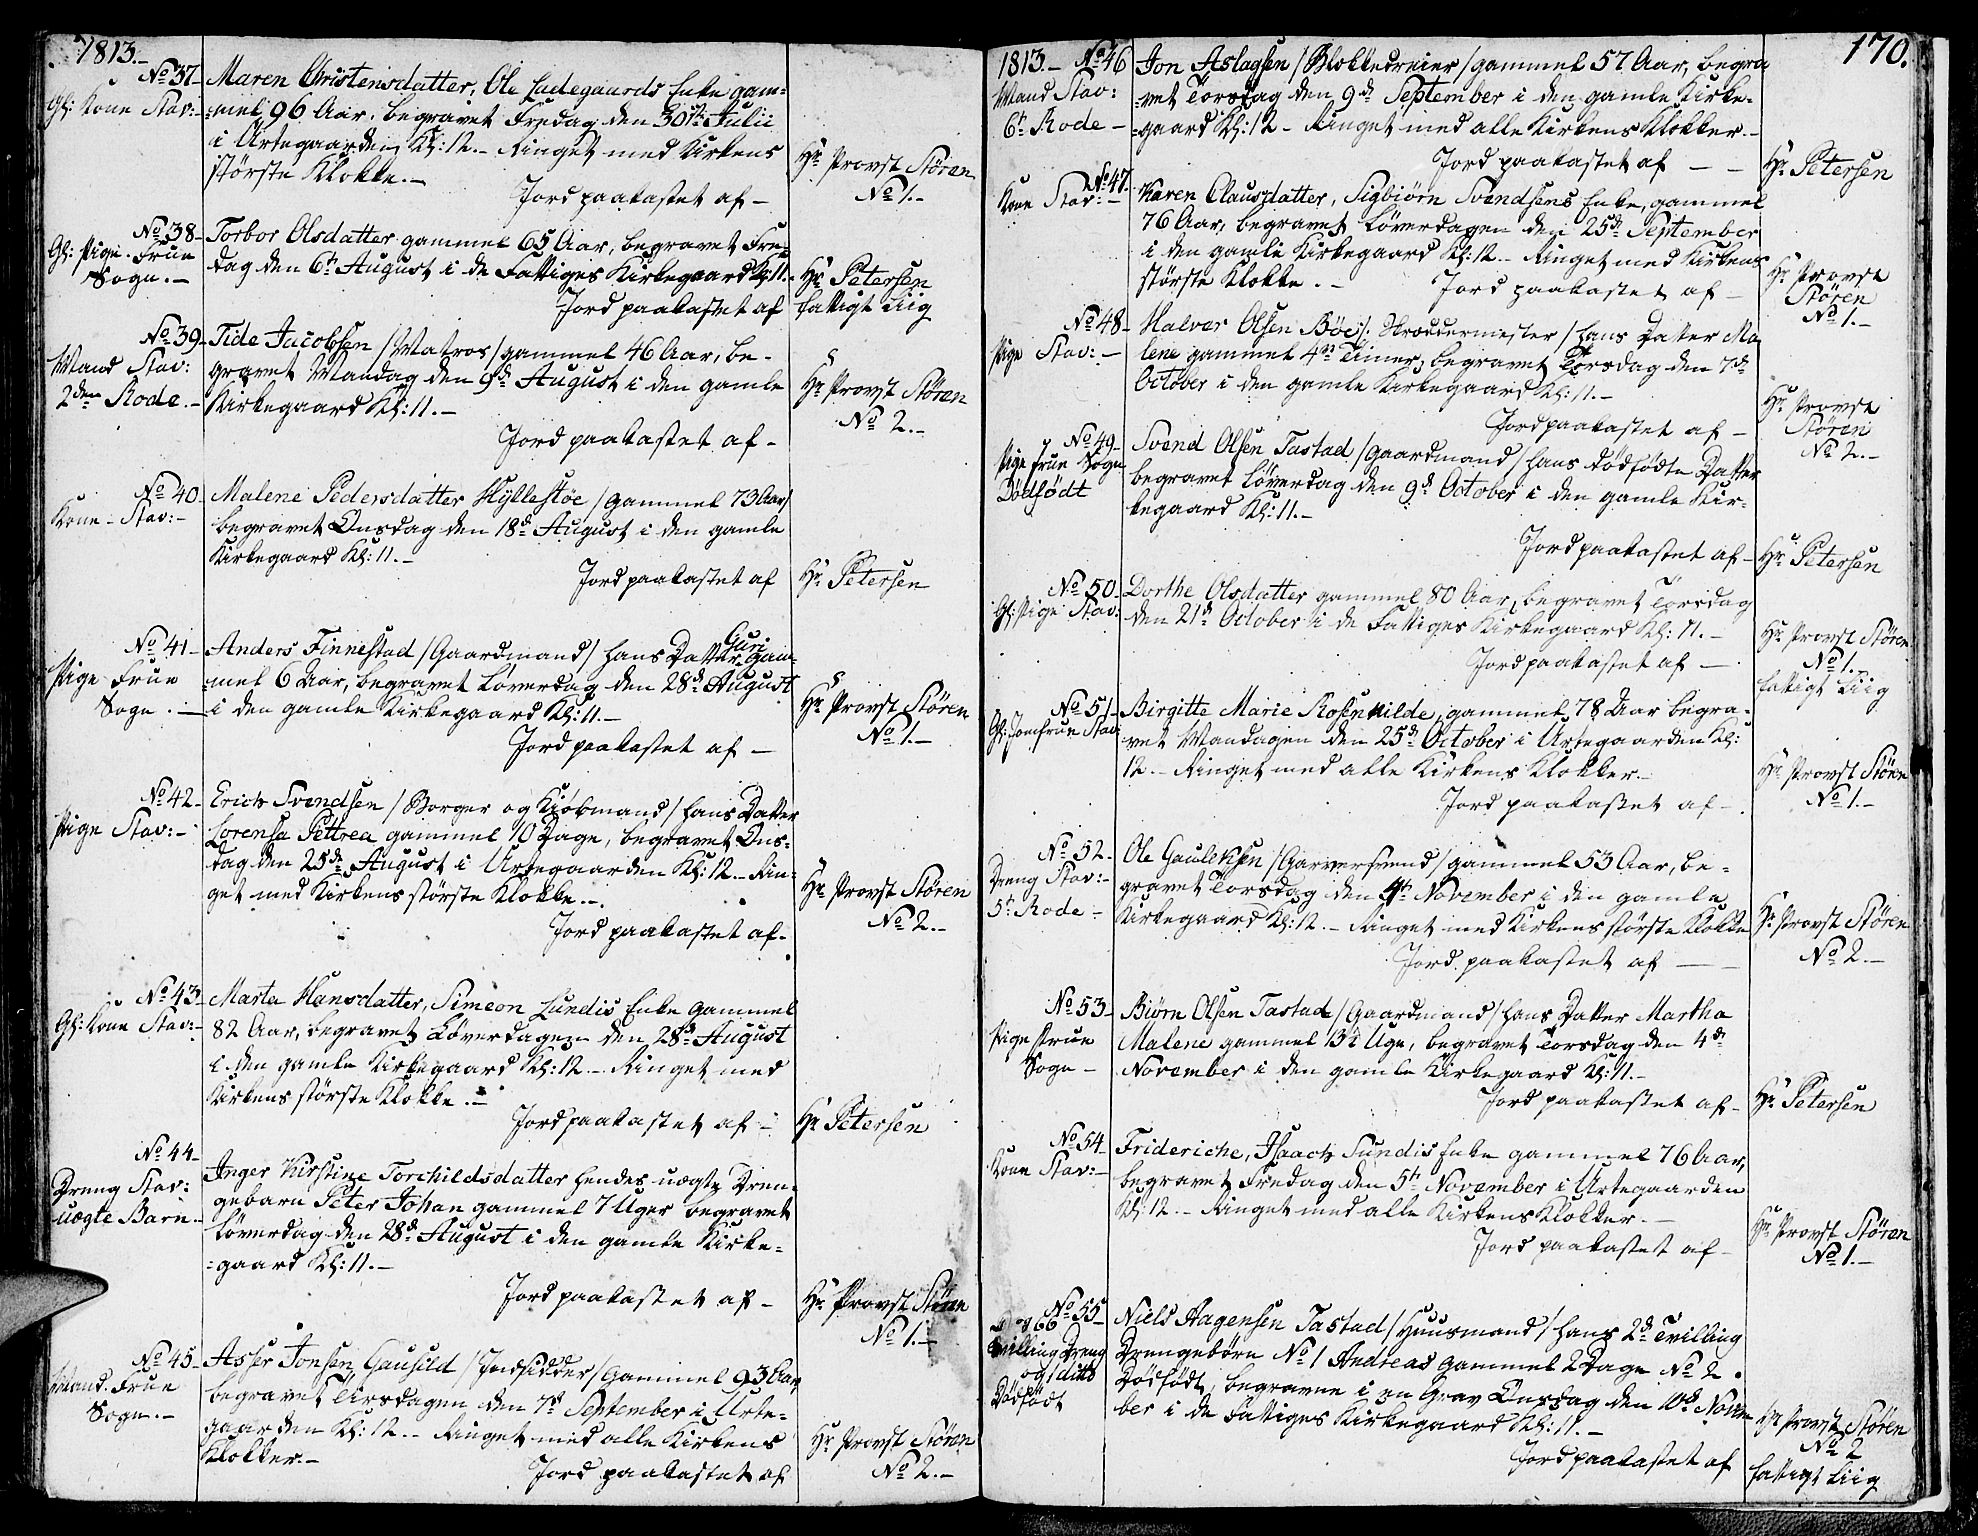 1813.-
No 37-
Gl: Kone Stav:-
Maren Christensdatter, Ole Ladegaards Enke gam=
=mel 96 Aar, begravet Fredag den 30te Julii
i Urtegaarden Kl: 12.- Ringet med Kirkens
største Klokke.-
Jord paakastet af -
Hr Provst Støren
No 1.-
No 38-
Gl: Pige. Frue
Sogn.-
Torbor Olsdatter gammel 65 Aar, begravet Fre-
dag den 6te August i de Fattiges Kirkegaard Kl: 11.-
Jord paakastet af
Hr Petersen
fattigt Liig
No 39-
Mand Stav:
2den Rode.-
Tide Jacobsen /Matros/ gammel 46 Aar, be-
gravet Mandag den 9de August i den gamle
Kirkegaard Kl: 11.-
Jord paakastet af -
Hr Provst Støren
No 2.-
No 40-
Kone - Stav:-
Malene Pedersdatter Hyllestøe /gammel 73 Aar/
begravet Onsdag den 18de August i den gamle
Kirkegaard Kl: 11.-
Jord paakastet af
Hr Petersen
No 41-
Pige Frue
Sogn.-
Anders Finnestad /Gaardmand/ hans Datter Guri gam-
=mel 6 Aar, begravet Løverdag den 28de August
i den gamle Kirkegaard Kl: 11.-
Jord paakastet af -
Hr Provst Støren
No 1.-
No 42-
Pige Stav:-
Erich Svendsen /Borger og Kiøbmand/ hans Datter
Lorensa Pettrea gammel 10 Dage, begravet Ons-
dag den 25de August i Urtegaarden Kl: 12.- Rin-
get med Kirkens største Klokke.-
Jord paakastet af-
Hr Provst Støren
No 2.-
No 43-
Gl: Kone Stav:-
Marta Hansdatter, Simeon Lundis Enke gammel
82 Aar, begravet Løverdagen den 28de August
i den gamle Kirkegaard Kl: 12.- Ringet med
Kirkens største Klokke.-
Jord paakastet af -
Hr Petersen
No 44-
Dreng Stav:
uægte Barn-
Inger Kirstine Torchildsdatter hendes uægte Dren-
gebarn Peter Johan gammel 7 Uger begravet
Løverdag den 28de August i den gamle Kirke=
=gaard Kl: 11.-
Jord paakastet af -
Hr Provst Støren
No 1.-
No 45-
Mand. Frue
Sogn.-
Asser Jonsen Gausild /Indsidder/ gammel 93 Aar
begravet Tirsdagen den 7de September i Urte-
gaarden Kl: 12.- Ringet med alle Kirkens
Klokker.-
Jord paakastet af
Hr Provst Støren
No 2.-
170.
1813.- No 46
Mand Stav:
6te Rode -
Jon Aslagsen /Blokkedreier/ gammel 57 Aar, begra
=vet Torsdag den 9de September i den gamle Kirke-
=gaard Kl: 12 - Ringet med alle Kirkens Klokker.-
Jord paakastet af - -
Hr Petersen
No 47.
Kone Stav:-
Karen Clausdatter, Sigbiørn Svendsens Enke, gammel
76 Aar, begravet Løverdagen den 25de September
i den gamle Kirkegaard Kl: 12.- Ringet med Kirkens
største Klokke.-
Jord paakastet af -
Hr Provst
Støren
No 1.-
No 48-
Pige Stav:-
Halvor Olsen Bøe /Skreddermester/ hans Datter Ma
lene gammel 4re Timer, begravet Torsdag den 7de
October i den gamle Kirkegaard Kl: 11.-
Jord paakastet af -
Hr Provst
Støren
No 2.-
No 49-
Pige Frue Sogn
Dødfødt
Svend Olsen Tastad /Gaardmand/ hans dødfødte Datter
begravet Løverdag den 9de October i den gamle Kir-
kegaard Kl: 11.-
Jord paakastet af -
Hr Petersen
No 50-
Gl: Pige Stav:
Dorthe Olsdatter gammel 80 Aar, begravet Torsdag
den 21de October i de Fattiges Kirkegaard Kl: 11.-
Jord paakastet af -
Hr Provst Støren
No 1.-
fattigt Liig
No 51-
Gl: Jomfrue Stav:
Birgitte Marie Rosenkilde, gammel 78 Aar begra-
vet Mandagen den 25de October i Urtegaarden Kl:
12.- Ringet med alle Kirkens Klokker.-
Jord paakastet af -
Hr Provst Støren
No 1.-
No 52-
Dreng Stav:-
5te Rode -
Ole Gauleksen /Garversvend/ gammel 53 Aar, be-
gravet Torsdag den 4de November i den gamle
Kirkegaard Kl: 12.- Ringet med Kirkens største Klokke
Jord paakastet af - -
Hr Provst Støren
No 2.-
No 53-
Pige Frue
Sogn -
Biørn Olsen Tastad /Gaardmand/ hans Datter Martha
Malene gammel 13½ Uge, begravet Torsdag den 4de
November i den gamle Kirkegaard Kl: 11.-
Jord paakastet af -
Hr Petersen
No 54-
Kone Stav:-
Frideriche, Isaach Sundis Enke gammel 76 Aar,
begravet Fredag den 5te November i Urtegaarden
Kl: 12.- Ringet med alle Kirkens Klokker.-
Jord paakastet af -
Hr Provst Støren
No 1.-
No 55-
og 66
Tvilling Dreng
og ditto
Dødfødt
Niels Aagensen Tastad /Huusmand/ hans 2de Tvilling
Drengebørn No 1 Andreas gammel 2 Dage No 2.
Dødfødt, begravne i en Grav Onsdag den 10de Novem
ber i de Fattiges Kirkegaard Kl: 11.-
Jord paakastet af
Hr Provst Støren
No 2
fattigt Liig